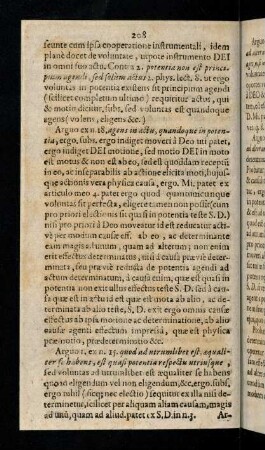 208
seunte cum ipsa cooperatione instrumentali, idem
planè docet de voluntate, utpote instrumento DEI
in omni suo actu. Contra 2. potentia non est princi-
pium agendi, sed solùm actus 1. phys. lect. 8. ut ergo
voluntas in potentia existens sit principium agendi
(scilicet completum ultimo) requiritur actus, qui
& motio dicitur, subs. sed voluntas est quandoque
agens (volens, eligens &c.)
Arguo ex n. 18. agens in actu, quandoque in poten-
tia, ergo, subs. ergo indiget moveri à Deo ut patet,
ergo indiget DEI motione, sed motio DEI in moto
est motus & non est ab eo, sed est quoddam receptũ
in eo, ac inseparabilis ab actione elicita moti, hujus-
que actionis vera physica causa, ergo. Mi. patet ex
articulo uno 4. patet ergo quod quamcumcunque
voluntas sit perfecta, eligere tamen non possit (cum
pro priori electionis sit quasi in potentia teste S. D.)
nisi pro priori à Deo moveatur id est reducatur acti-
vè per motionem effectus, ab eo, ac determinante
eam magis ad unum, quam ad alterum; non enim
erit effectus determinatus, nisi à causa præviè de-
terminata, seu præviè remissa de potentia agendi ad
actum determinatum, à causa autem, quæ est quasi
in potentia non exit ullus effectus teste S. D. sed à causa
quæ est in actu id est quæ est mota ab alio, ac de-
terminata ab alio teste S. D. ergo omnis causa ante
effectus ab ipsa motione ac determinatione, ab alio
causæ agenti effectum impressâ, quæ est physica
præmotio, prædeterminatio &c.
Arguo 1. ex n. 15. quod ad utrumlibet est, æquali-
ter se habens, est quasi potentia respectu utriusque,
sed voluntas ad utrumlibet est æqualiter se habens (ut
quasi eligendum vel non eligendum, &c. ergo. subs.
ergo nihil (scilicet determinatè) sequitur ex illa nisi
determinetur, scilicet per aliquam aliam causam, magis
ad unũ, quam ad aliud. patet ex S. D. in n. 3. Ar-